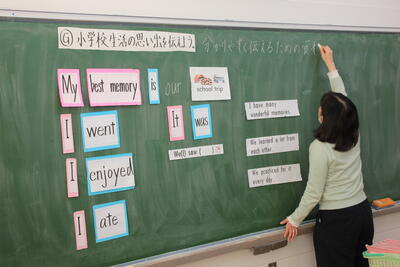 Ⓖ小学校生活の思い出を伝えよう。 分かりやすく伝えるための
My best memory is our school trip
I went It was
I have many wonderful memories.
We(I) saw ( ).
We learned a lot from each other.
I enjoyed
We practiced for it every day.
I ate